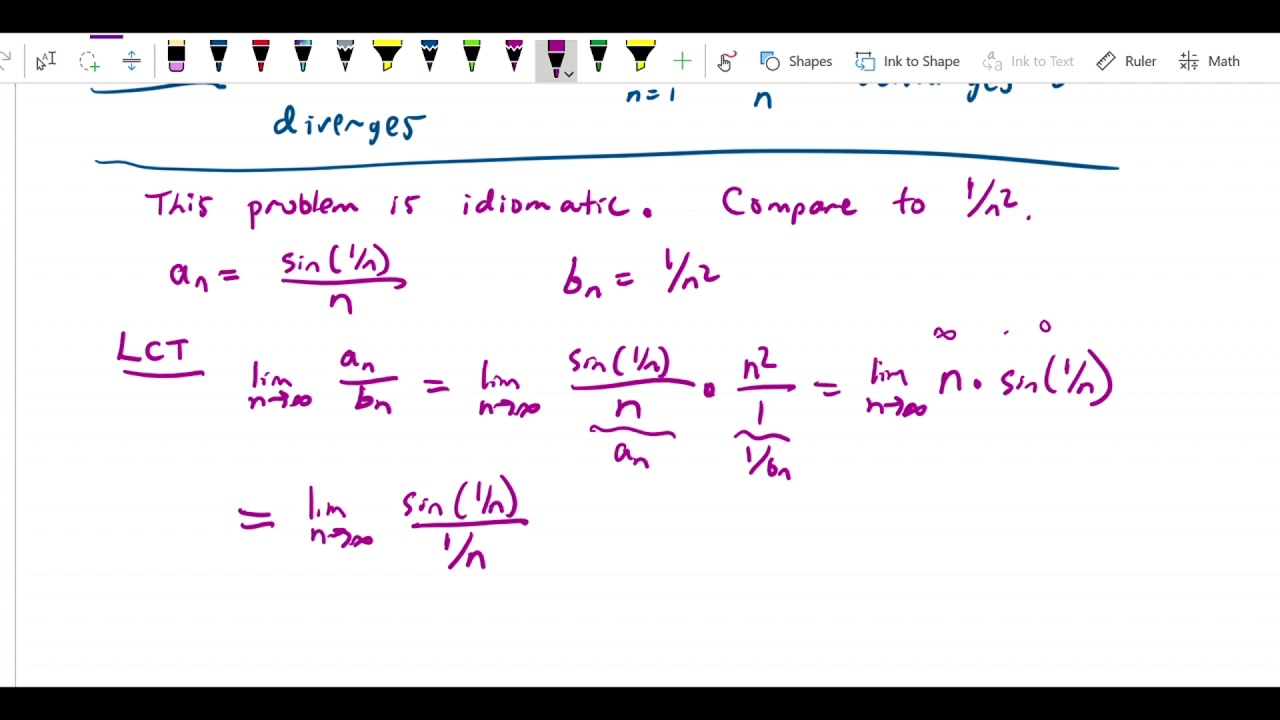 Shapes Ink to Shape Ink to Text Ruler Math
n=1 n
diverges
This problem is idiomatic. Compare to 1/n².
aₙ = sin(1/n)/n bₙ = 1/n²
LCT lim n→∞ aₙ/bₙ = lim n→∞ sin(1/n)/n · n²/1 = lim n→∞ n · sin(1/n)
∞ · 0
aₙ 1/bₙ
= lim n→∞ sin(1/n)/(1/n)